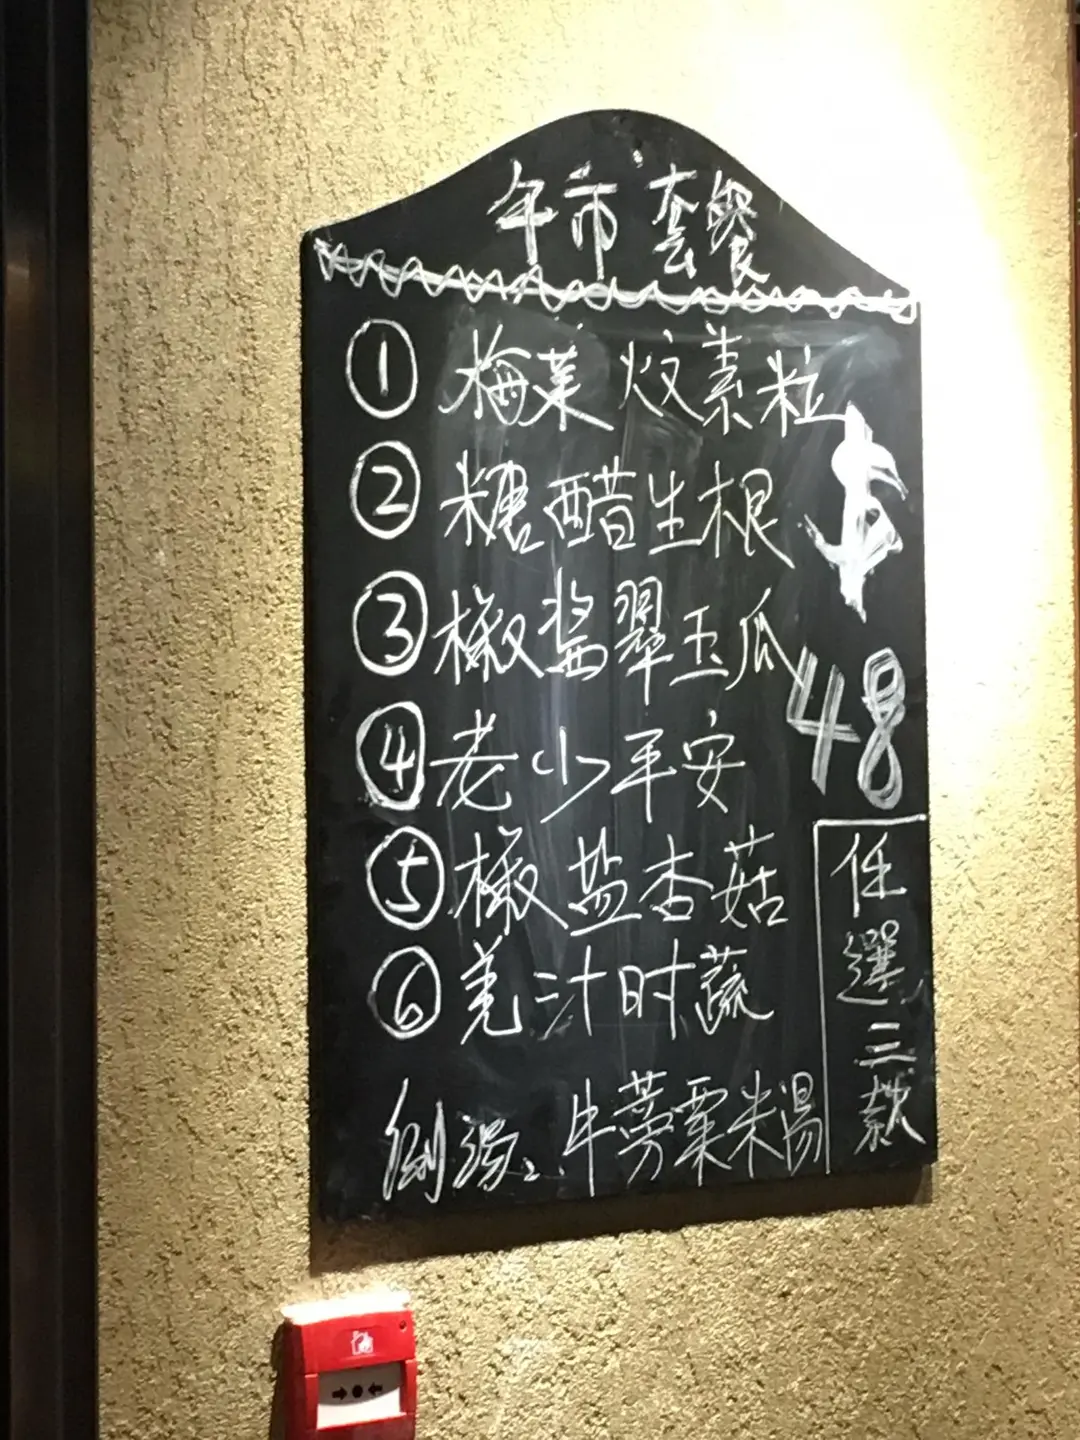 午市套餐
① 梅菜炆素粒
② 糖醋生根
③ 椒酱翠玉瓜
④ 老少平安
⑤ 椒盐杏菇
⑥ 羌汁时蔬
例湯：牛蒡粟米湯
$48
任選三款